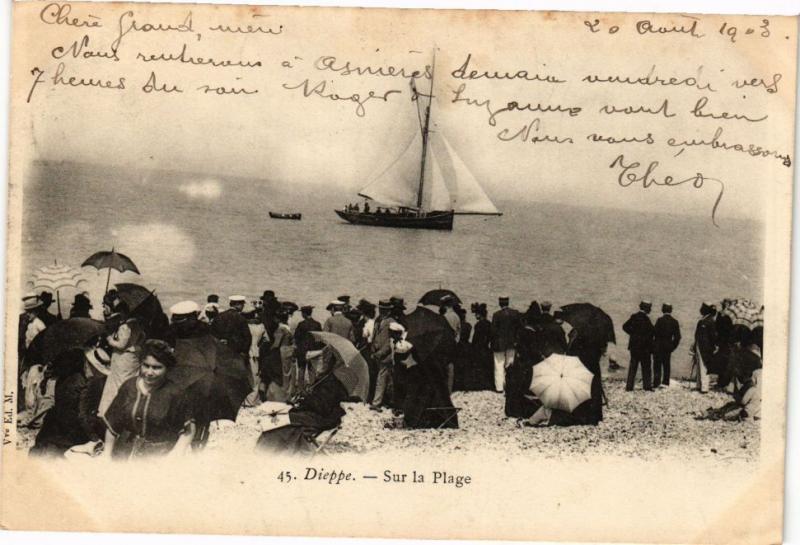 Chère Grand, mère 20 Août 1903.
Nous rentrerons à Asnières demain vendredi vers
7 heures du soir Roger & Suzanne vont bien
Nous vous embrassons
Théo
Vve Ed. M.
45. Dieppe. — Sur la Plage